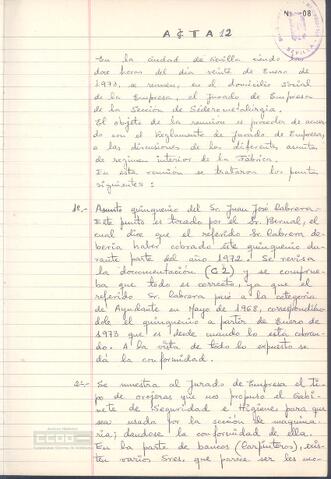 Nº 08
ACTA 12
En la ciudad de Sevilla siendo las
doce horas del día veinte de Enero de
1973, se reunen, en el domicilio social
de la Empresa, el Jurado de Empresa
de la Sección de Siderometalurgia.
El objeto de la reunión es proceder de acuer
do con el Reglamento de Jurado de Empresa,
a las discusiones de los diferentes asuntos
de regimen interior de la Fábrica.
En esta reunión se trataron los puntos
siguientes:
1º.- Asunto quinquenio del Sr. Juan José Cabrera.
Este punto es tocado por el Sr. Bernal, el
cual dice que el referido Sr. Cabrera de-
bería haber cobrado este quinquenio du-
rante parte del año 1972. Se revisa
la documentación (C2) y se comprue-
ba que todo es correcto, ya que el
referido Sr. Cabrera pasó a la categoria
de Ayudante en Mayo de 1968, correspondien-
dole el quinquenio a partir de Enero de
1973 que es desde cuando lo está cobran-
do. A la vista de todo lo expuesto se
dá la conformidad.
2º.- Se muestra al Jurado de Empresa el ti-
po de orejeras que nos propuso el Gabi-
nete de Seguridad e Higiene para que
sea usado por la sección de maquina-
ria; dandose la conformidad de ella.
En la parte de bancos (Carpinteros), exis-
ten varios Sres. que parece ser les mo-
CCOO